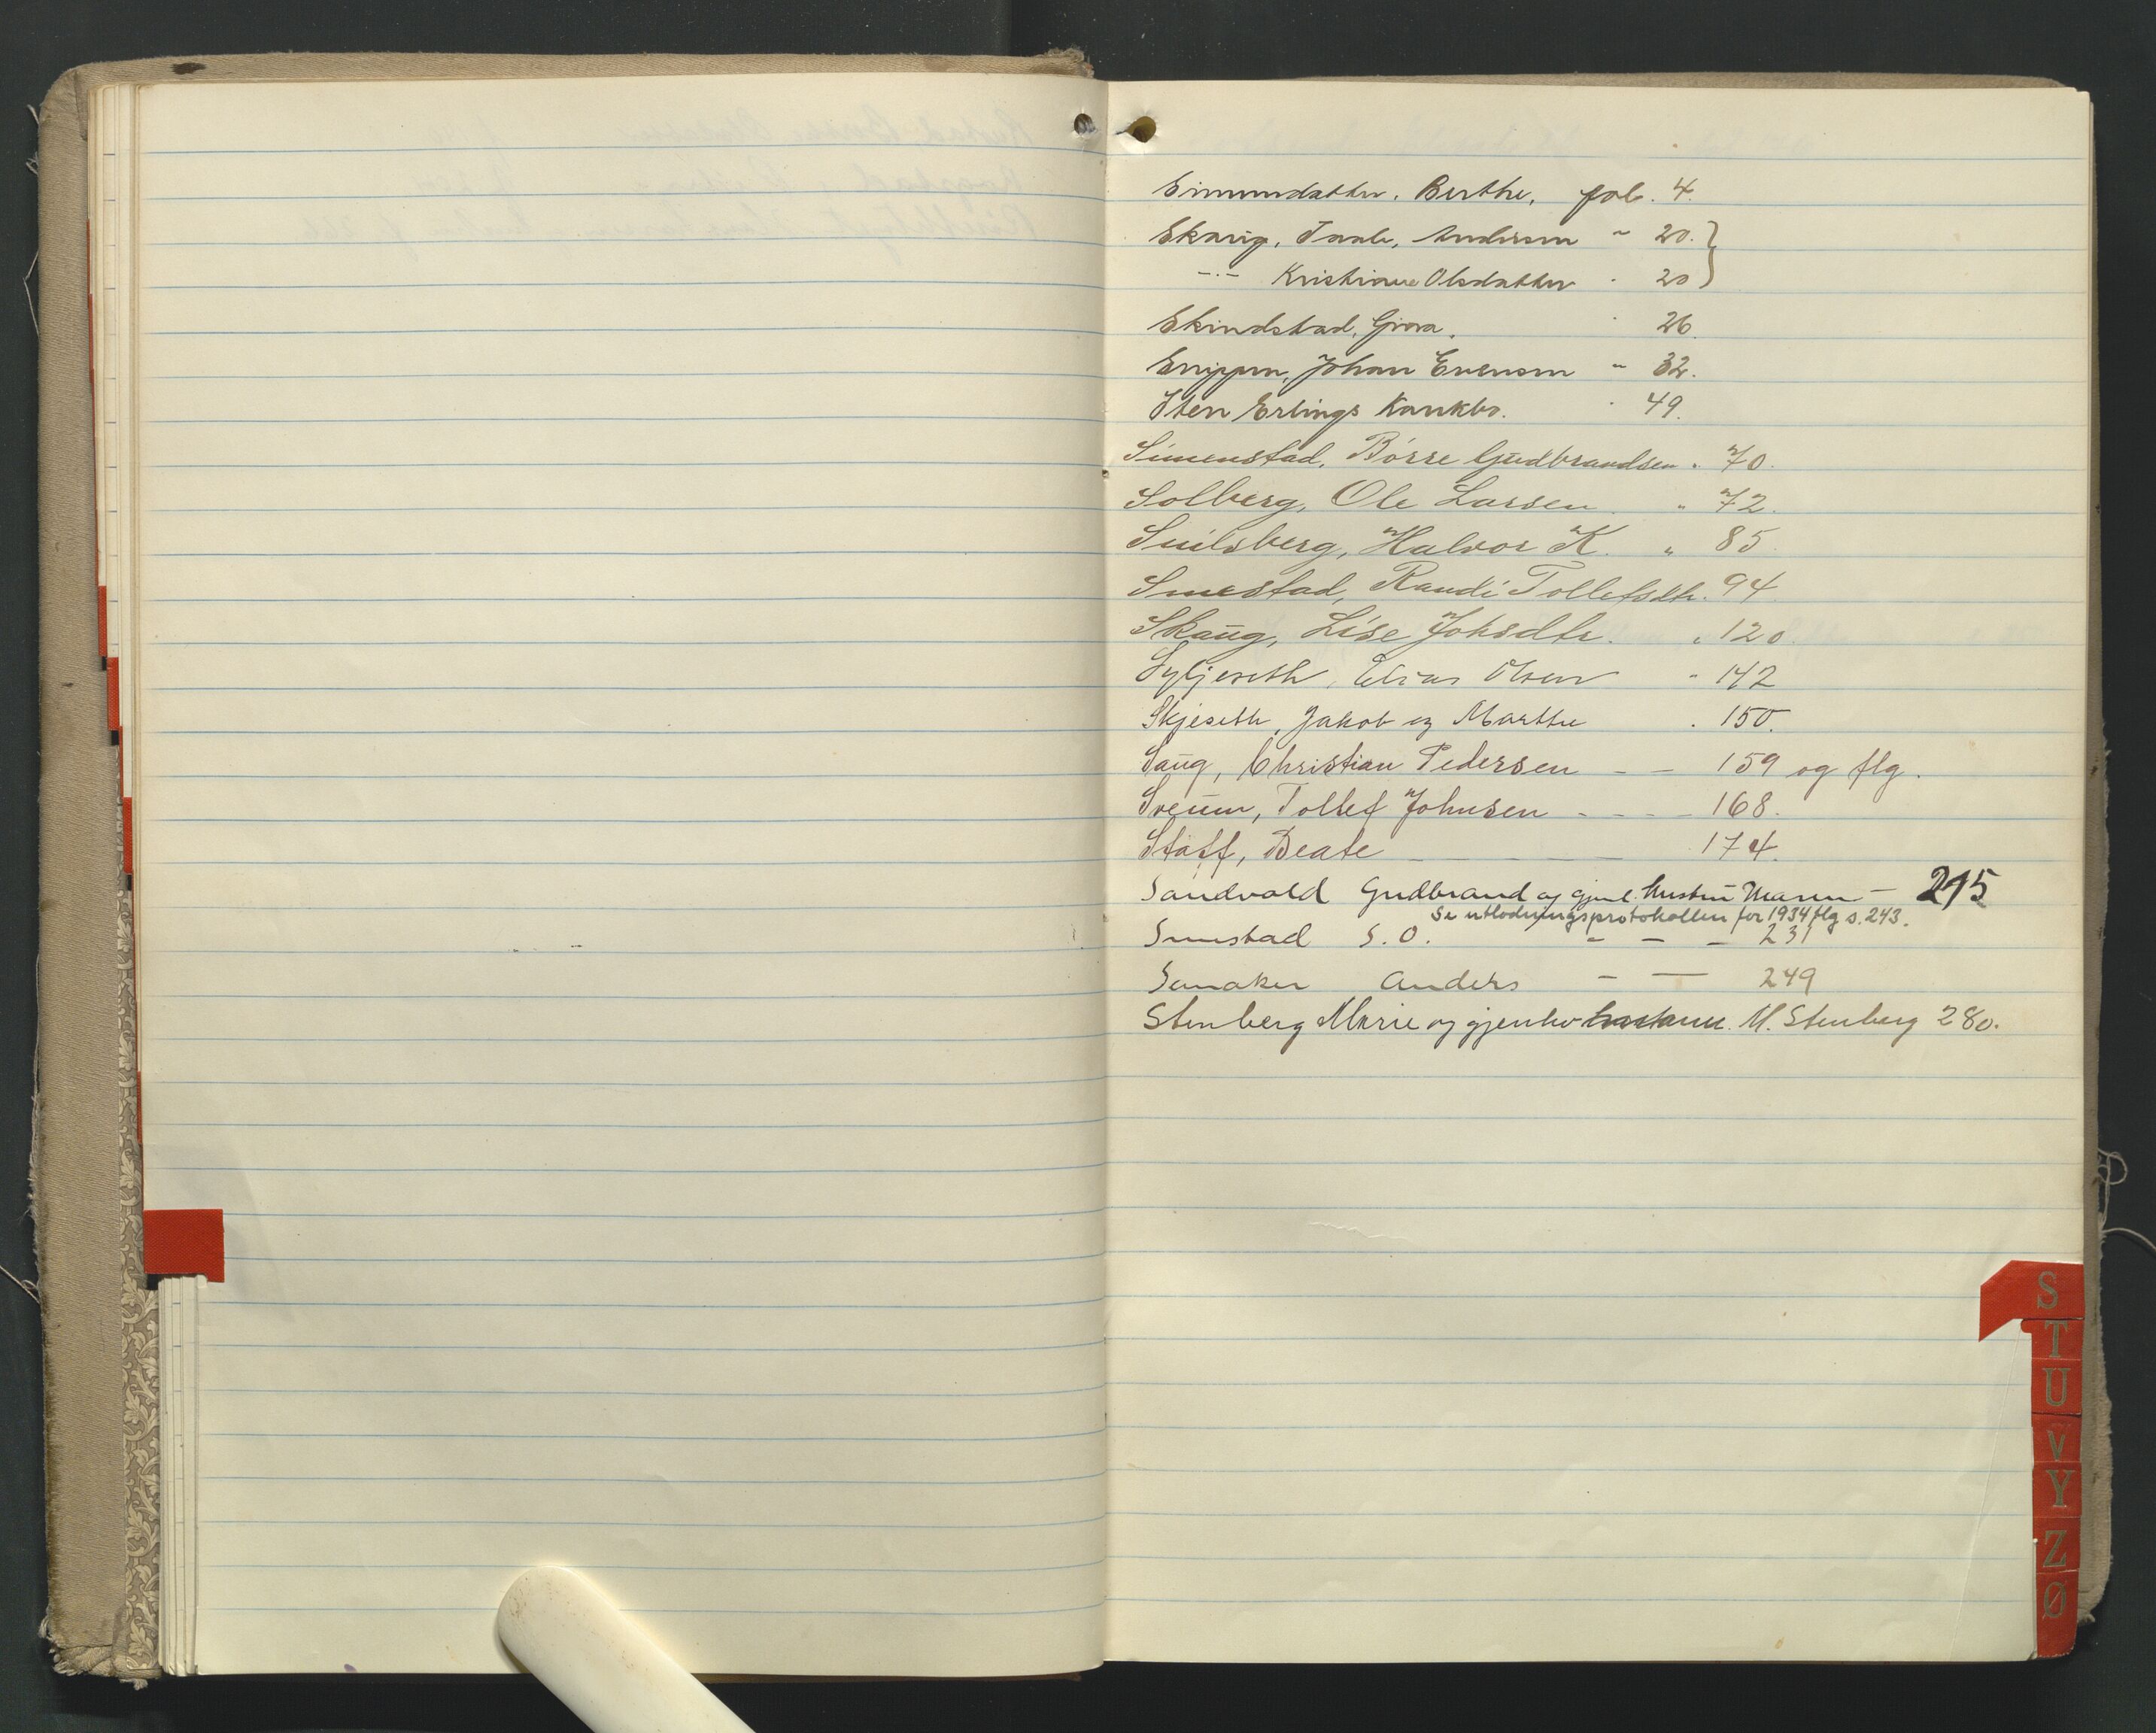 Simundsatter, Berthe, fol. 4.
Skaug, Anderson " 20. }
-"- Kristiane Olsdatter " 20 }
Skindstad, " 26
Snippen, Johan Evensen " 32.
Sten Erlings Konkbo. " 49.
Simenstad, Börre Gudbrandsen " 70.
Solberg, Ole Larsen " 72.
Smilsberg, Halvor K. " 85
Smestad, Randi Tollefsdtr. 94
Skaug, Lise Johsdtr. " 120
Syljeseth, Elias Olsen " 142
Skjeseth, Jakob og Marthe " 150.
Saug, Christian Pedersen - - 159 og flg.
Sveum, Tollef Johnsen - - - - 168.
Staff, Beate - - - - 174.
Sandvold Gudbrand og gjenl. hustru Maren - 215
Se utlodningsprotokollen for 1934 flg s. 243.
Smestad S. O. - - - 231
Semaker Anders - - 249
Stenberg Marie og M. Stenberg 280.
S
T
U
V
Y
Z
Ø